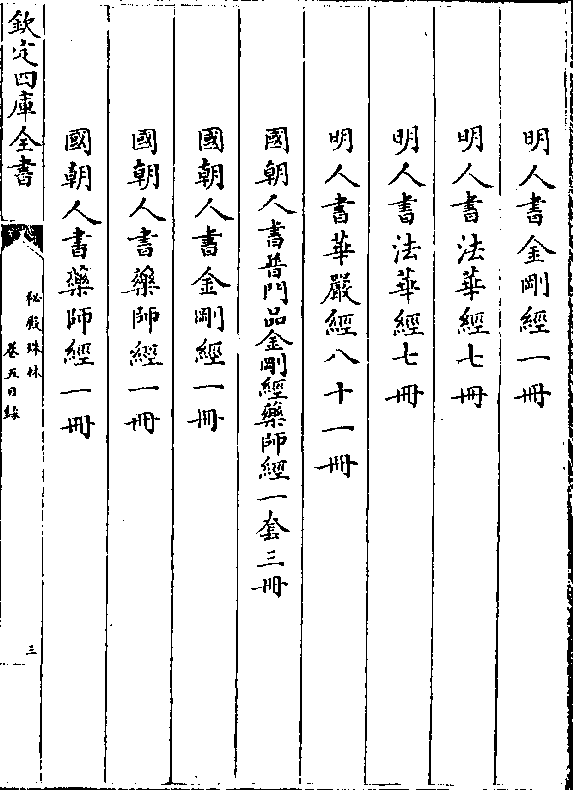 明人書金剛經一冊
明人書法華經七冊
明人書法華經七冊
明人書華嚴經八十一冊
國朝人書普門品金剛經藥師經一套三冊
國朝人書金剛經一冊
國朝人書藥師經一冊
國朝人書藥師經一冊
欽定四庫全書
秘殿珠林
卷五目錄
三